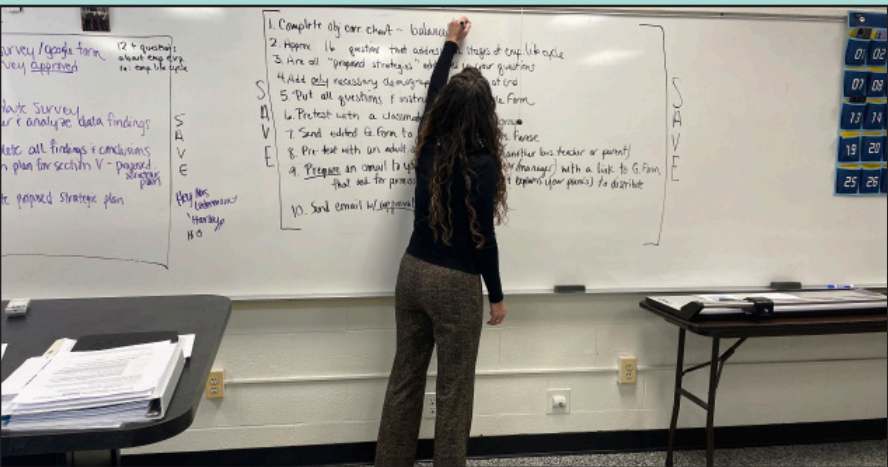 urvey/google form
vey approved
12+ questions
about emp. exp.
re: emp life cycle
late survey
er & analyze data findings
lete all findings & conclusions
n plan for section V - proposed
strategic
plan
te proposed strategic plan
SAVE
Hey
Hi
SAVE
1. Complete obj corr. chart - balance
2. Approx 16 question that address stages of emp. life cycle
3. Are all "proposed strategies" in your questions
4. Add only necessary demograp at end
5. Put all questions & instru Form
6. Pretest with a classma group
7. Send edited G. Form to s. Farese
8. Pre-test with an adult (another bus. teacher or parent)
9. Prepare an email to y (manager) with a link to G. Form
that ask for permiss explains your plan(s) to distribute
10. Send email w/ approval
SAVE
01 02
07 08
13 14
19 20
25 26